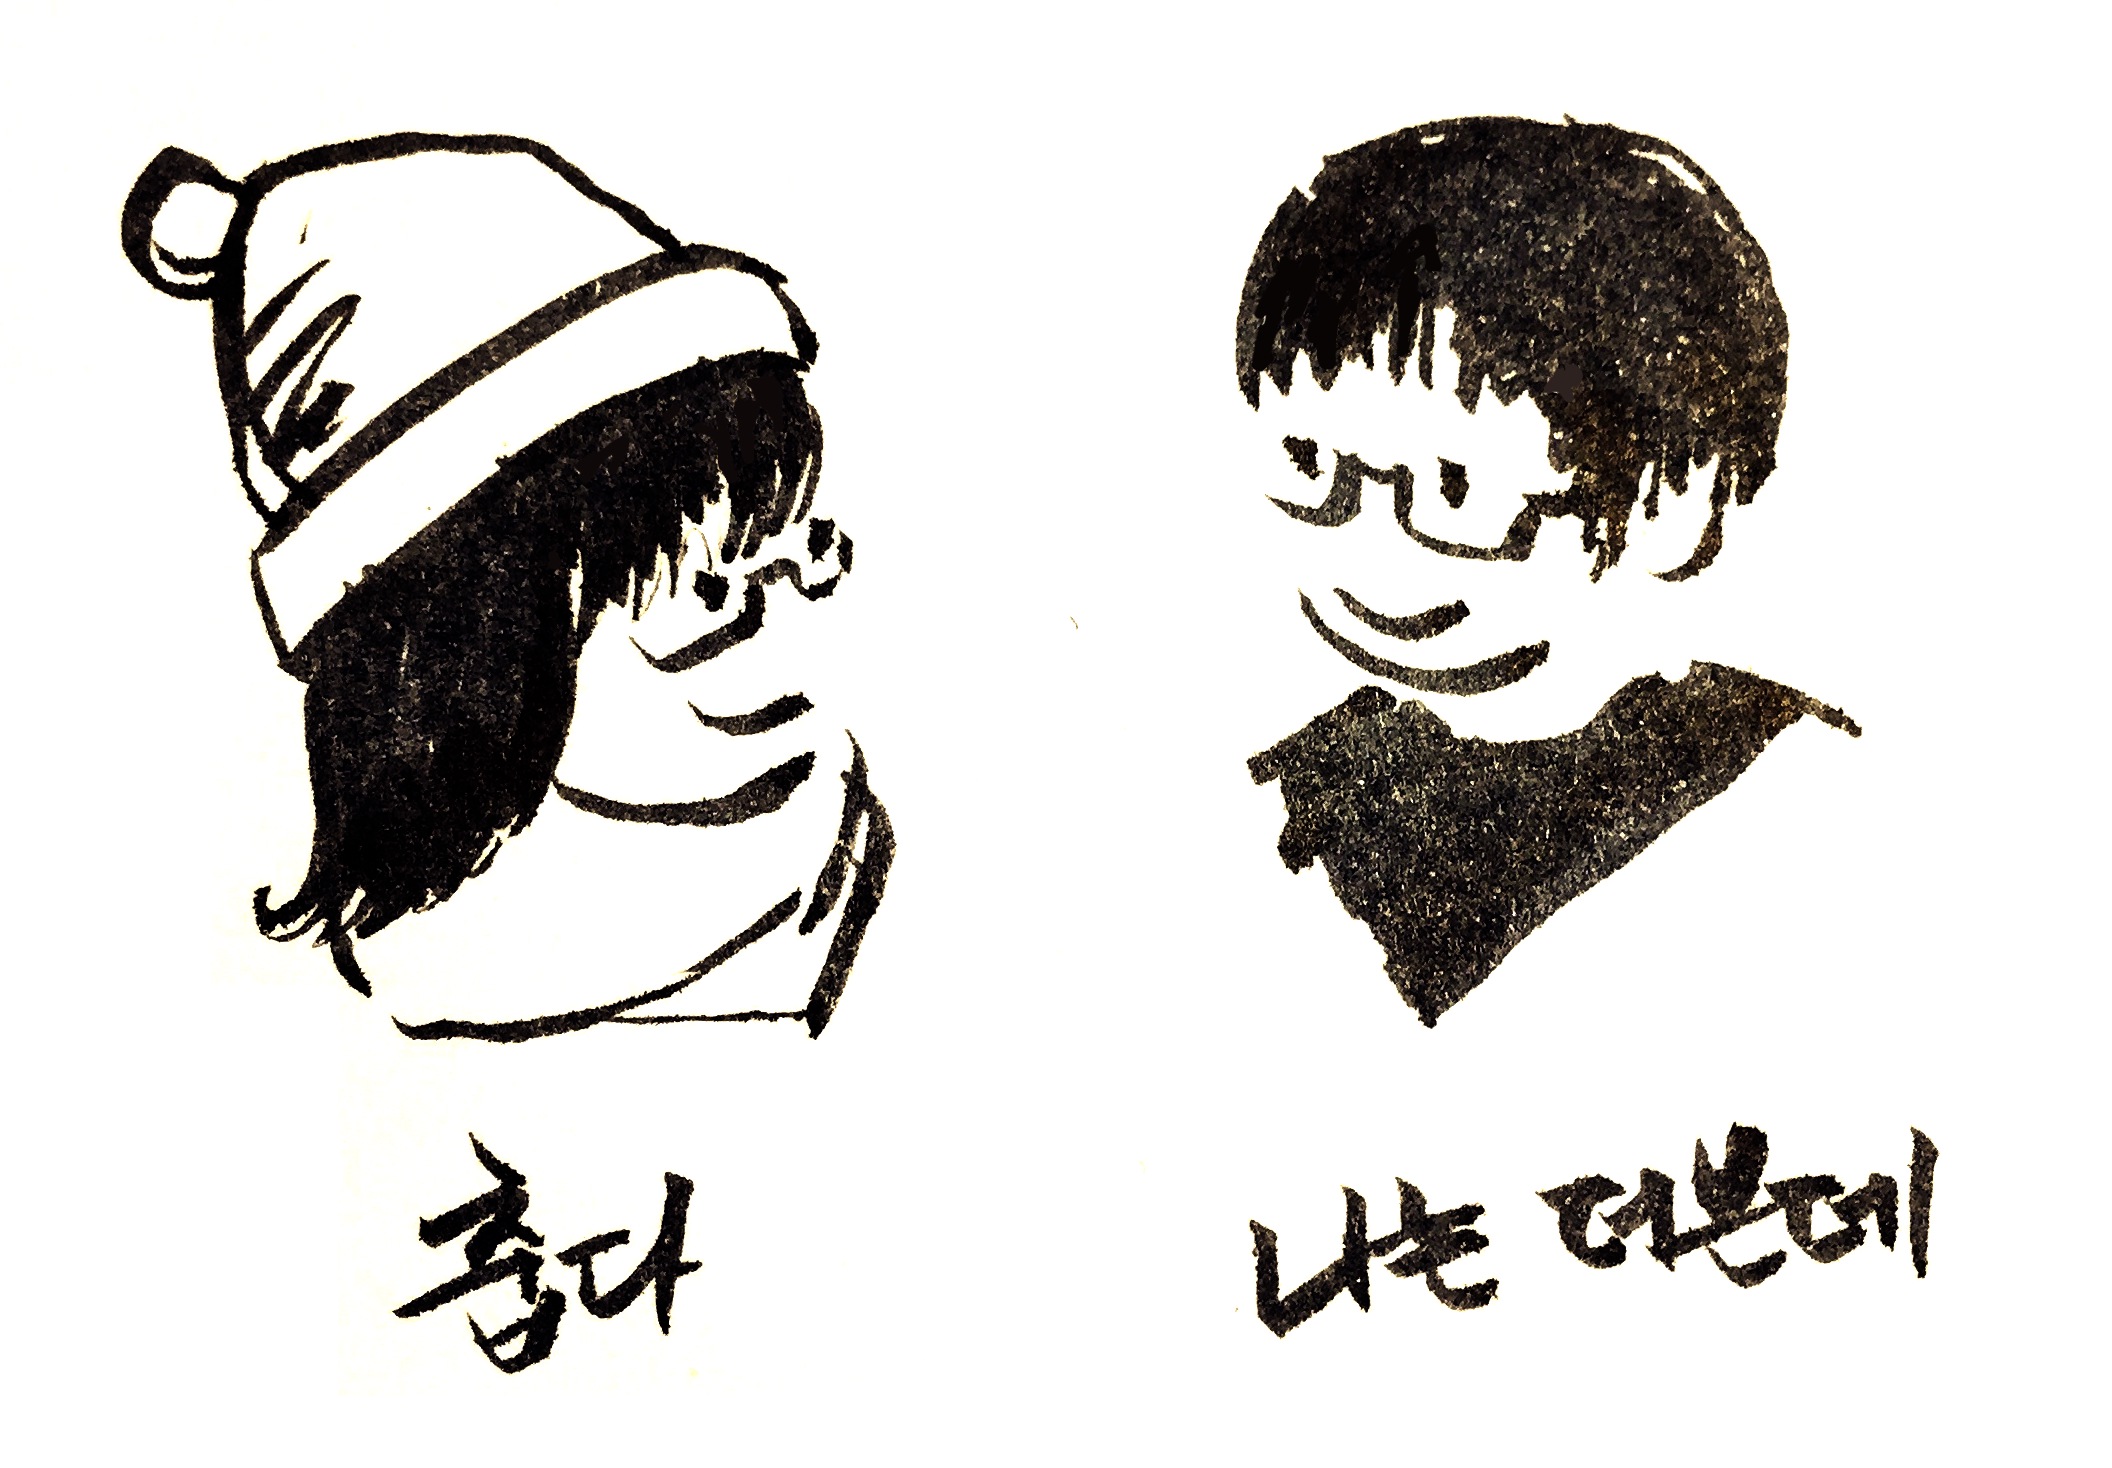 춥다
나는 더운데